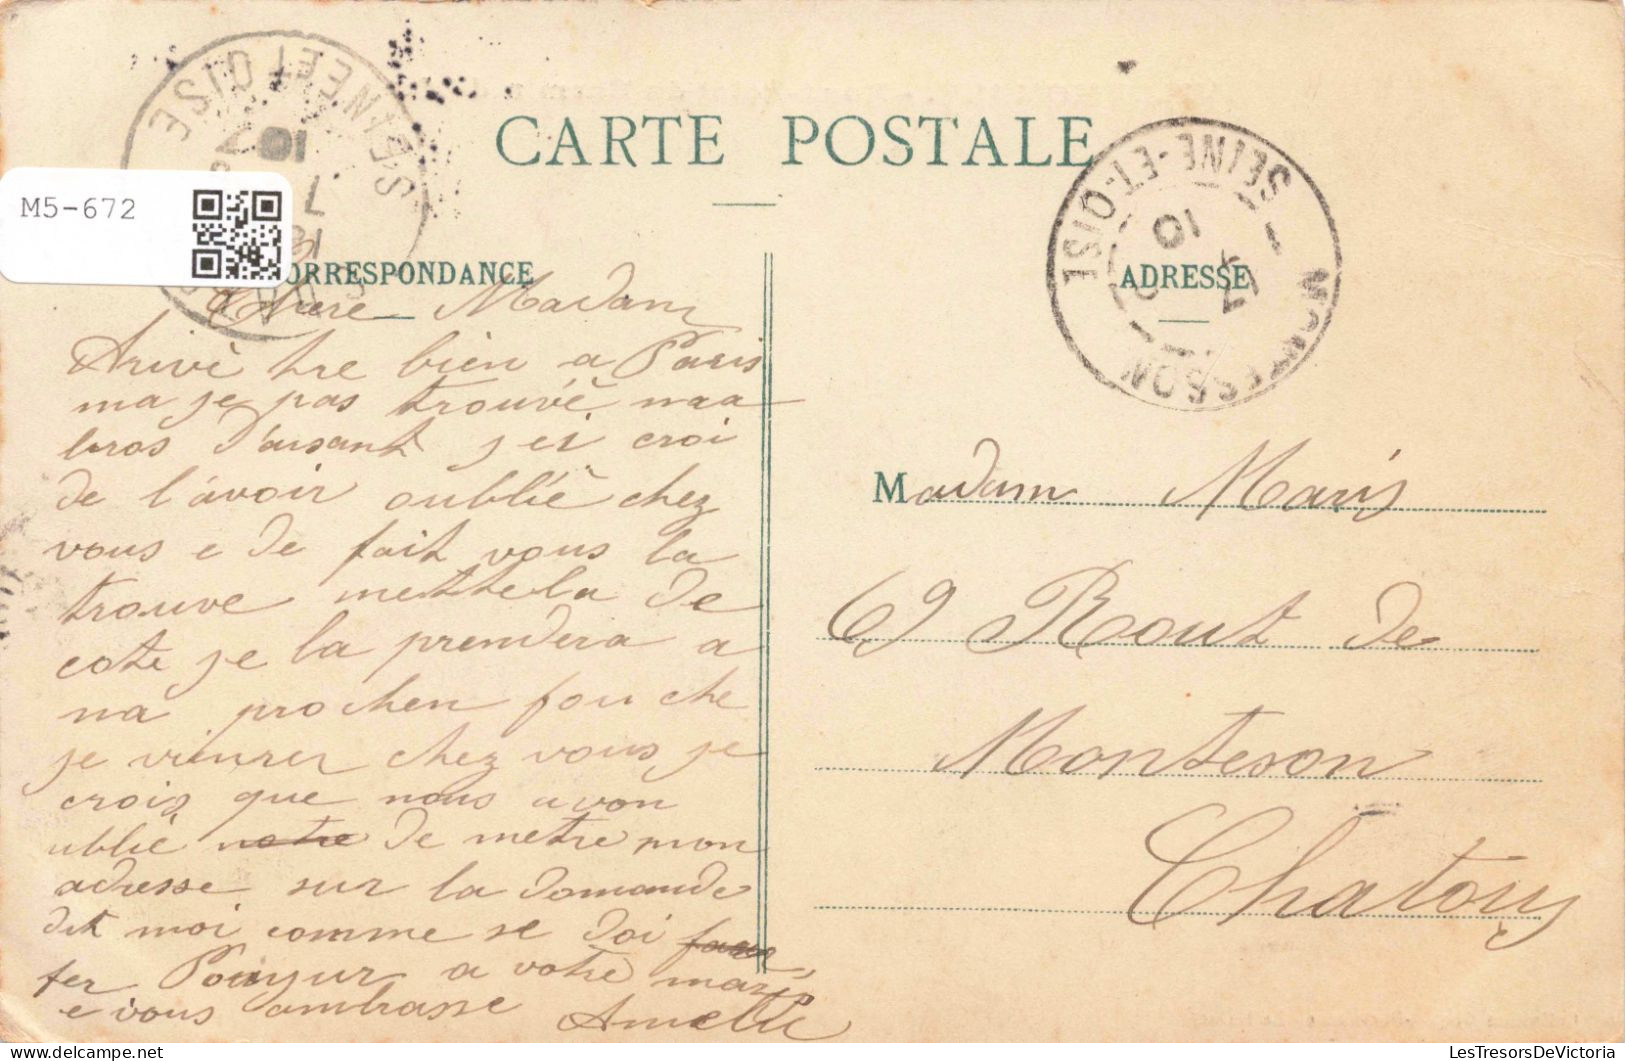 CARTE POSTALE
M5-672
CORRESPONDANCE
ADRESSE
SEINE ET OISE
10 7
SEINE-ET-OISE
MONTESSON
Chere Madam
Arivè tre bien a Paris
ma je pas trouvé maa
bros d'arsant j ei croi
de l'avoir oublié chez
vous e de fait vous la
trouve mettela de
cote je la prendera a
ma prochen fou che
je vienrer chez vous je
crois que nous avon
ublié notre de metre mon
adresse sur la domande
dit moi comme se doi
fer Bonjur a votre maris
e vous ambrasse Amelie
Madam Maris
69 Rout de
Monteson
Chatou
LesTresorsDeVictoria